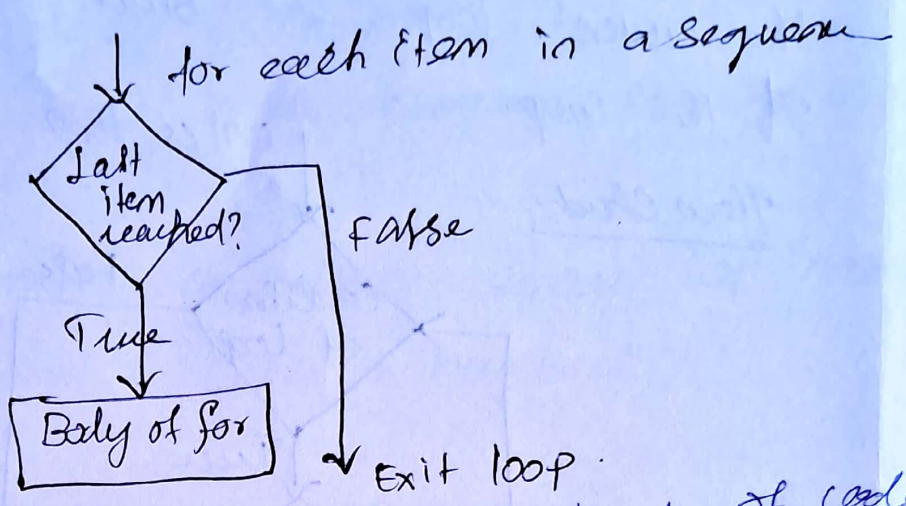 for each item in a sequence
Last
item
reached?
False
True
Body of for
Exit loop.
of